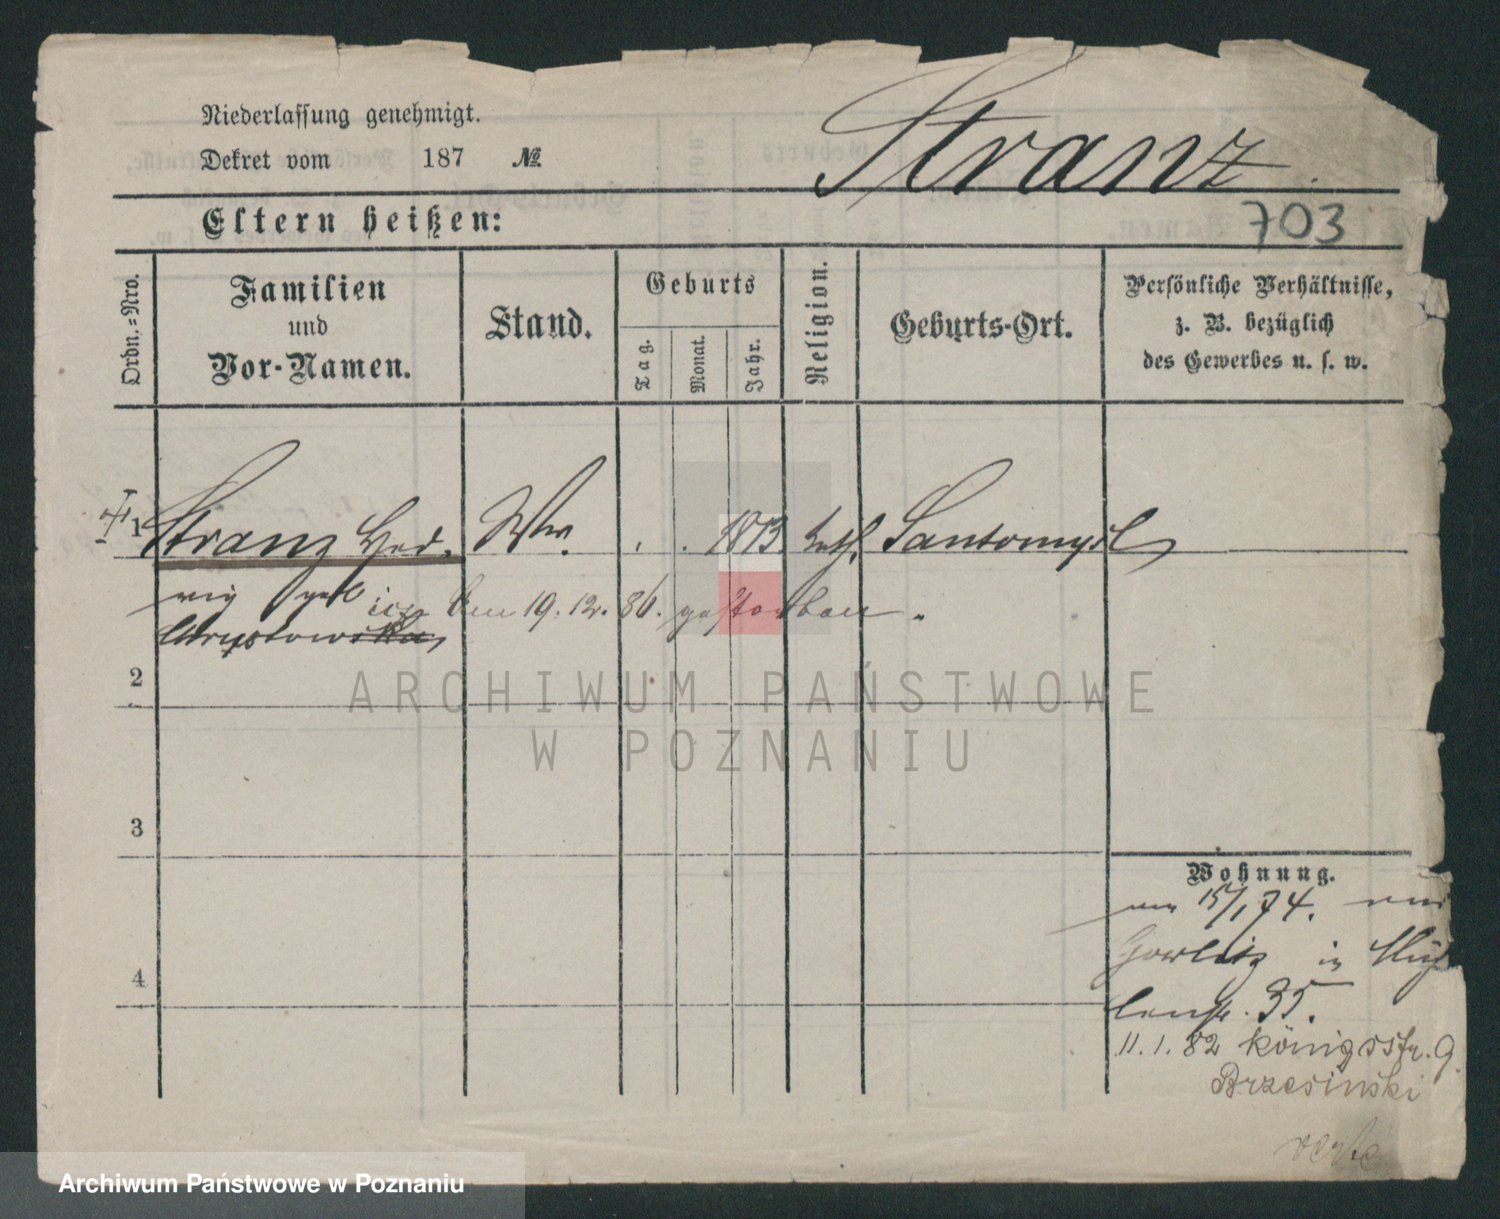 Niederlassung genehmigt.
Dekret vom 187 №
Stranz
Eltern heißen:
703
Ordn.-Nro.
Familien
und
Vor-Namen.
Stand.
Geburts
Tag.
Monat.
Jahr.
Religion.
Geburts-Ort.
Persönliche Verhältnisse,
z. B. bezüglich
des Gewerbes u. s. w.
1 Stranz Hed- Ww. . . 1813 kath. Santomysl
wig geb
den 19. 12. 86. gestorben.
2
ARCHIWUM PAŃSTWOWE
W POZNANIU
3
Wohnung.
15/1 74.
Gorlitz in Müh
lenstr. 35.
4
11. 1. 82 Königsstr. 9.
Brzesinski
Archiwum Państwowe w Poznaniu